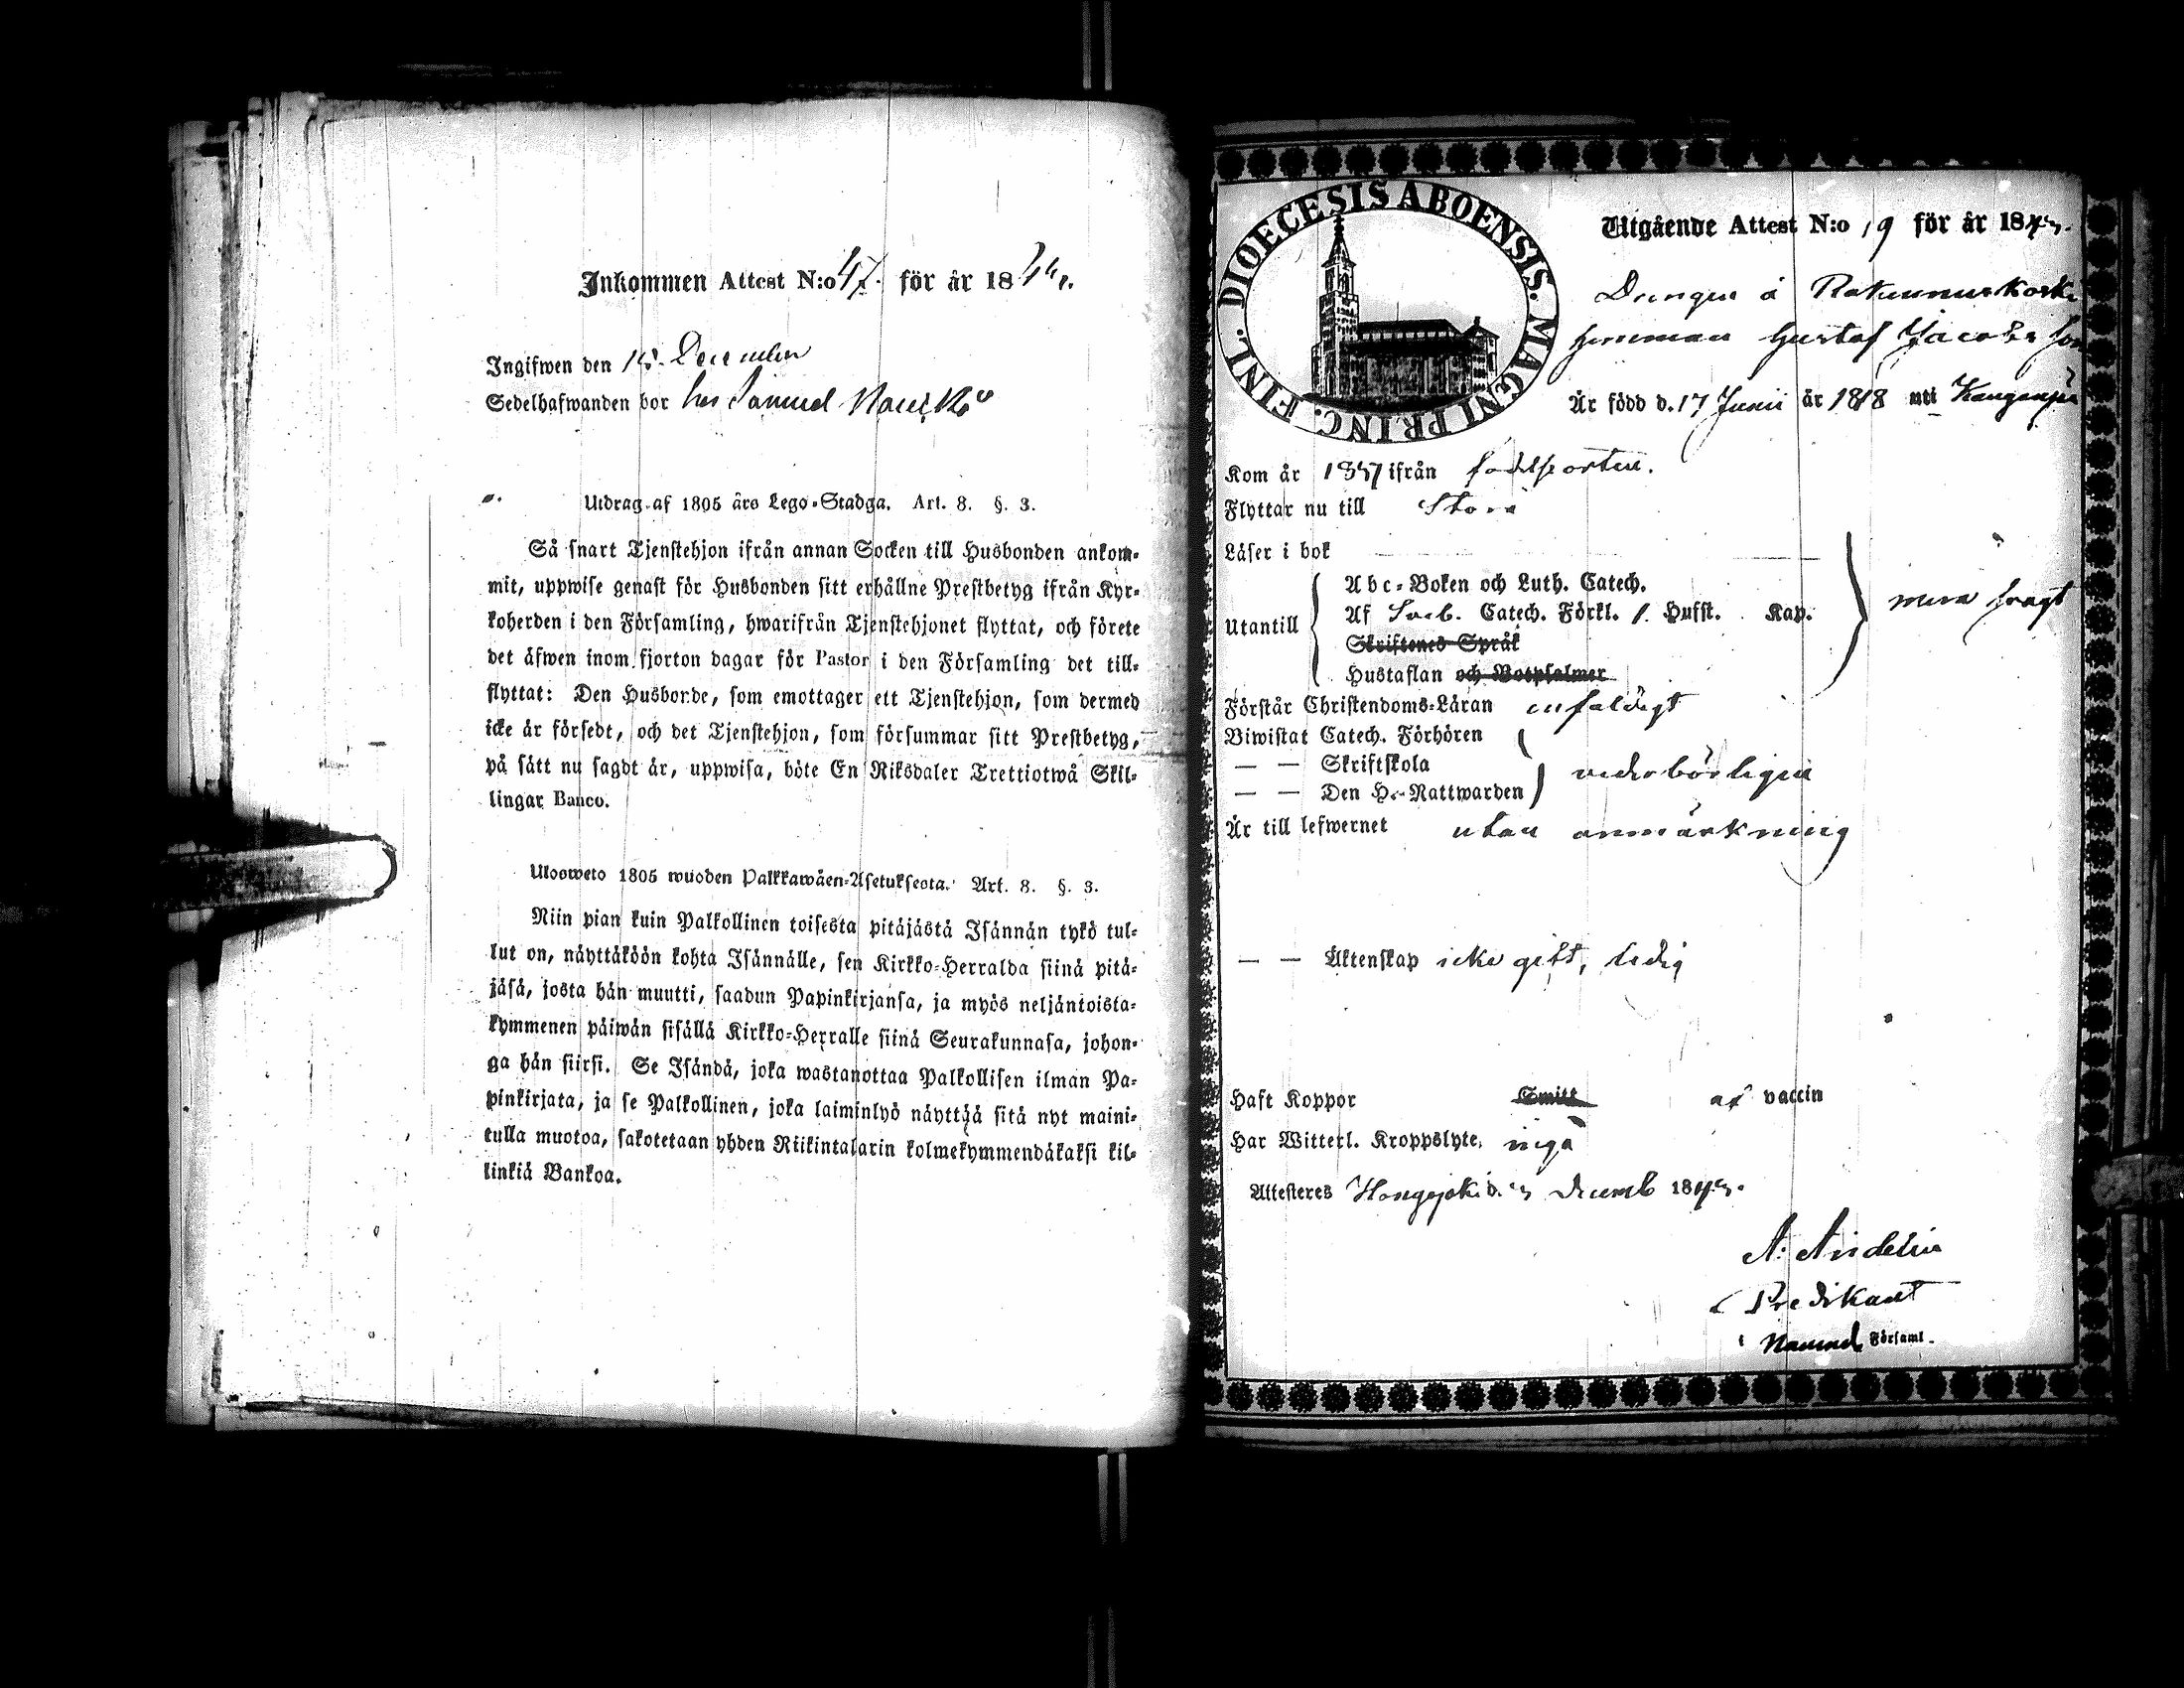 Inkommen Attest N:o 47. för år 184
Ingifwen den 15. December
Sedelhafwanden bor hos Samuel
Utdrag af 1805 års Lego-Stadga. Art. 8. §. 3.
Så snart Tjenstehjon ifrån annan Socken till Husbonden ankom-
mit, uppwise genast för Husbonden sitt erhållne Prestbetyg ifrån Kyr-
koherden i den Församling, hwarifrån Tjenstehjonet flyttat, och förete
det äfwen inom fjorton dagar för Pastor i den Församling det till-
flyttat: Den Husbonde, som emottager ett Tjenstehjon, som dermed
icke är försedt, och det Tjenstehjon, som försummar sitt Prestbetyg,
på sätt nu sagdt är, uppwisa, böte En Riksdaler Trettiotwå Skil-
lingar Banco.
Ulosweto 1805 wuoden Palkkawäen-Asetuksesta. Art. 8. §. 3.
Niin pian kuin Palkollinen toisesta pitäjästä Isännän tykö tul-
lut on, näyttäköön kohta Isännälle, sen Kirkko-Herralda siinä pitä-
jäsä, josta hän muutti, saadun Papinkirjansa, ja myös neljäntoista-
kymmenen päiwän sisällä Kirkko-Herralle siinä Seurakunnasa, johon-
ga hän siirsi. Se Isändä, joka wastanottaa Palkollisen ilman Pa-
pinkirjata, ja se Palkollinen, joka laiminlyö näyttää sitä nyt maini-
tulla muotoa, sakotetaan yhden Riikintalarin kolmekymmendäkaksi kil-
linkiä Bankoa.
DIOECESIS ABOENSIS. MAGNI PRINC. FINL.
Utgående Attest N:o 19 för år 184
Drengen å
hemman Gustaf Jacobs Son
Är född d. 17 Junii år 1818 uti
Kom år 1837 ifrån födelseorten.
Flyttar nu till
Läser i bok
Utantill
Abc-Boken och Luth. Catech.
Af Sveb. Catech. Förkl. 1. Hufst. Kap.
Skriftenes Språk
Hustaflan och Botpsalmer
svagt
Förstår Christendoms-Läran enfaldigt
Biwistat Catech. Förhören
— — Skriftskola
— — Den H. Nattwarden
vederbörligen
Är till lefwernet utan anmärkning
— — Äktenskap icke gift, ledig
Haft Koppor Smitt af vaccin
Har Witterl. Kroppslyte, inga
Attesteres Honginjoki d. Decemb 184
A: Andelin
Predikant
i Nämnde Församl.